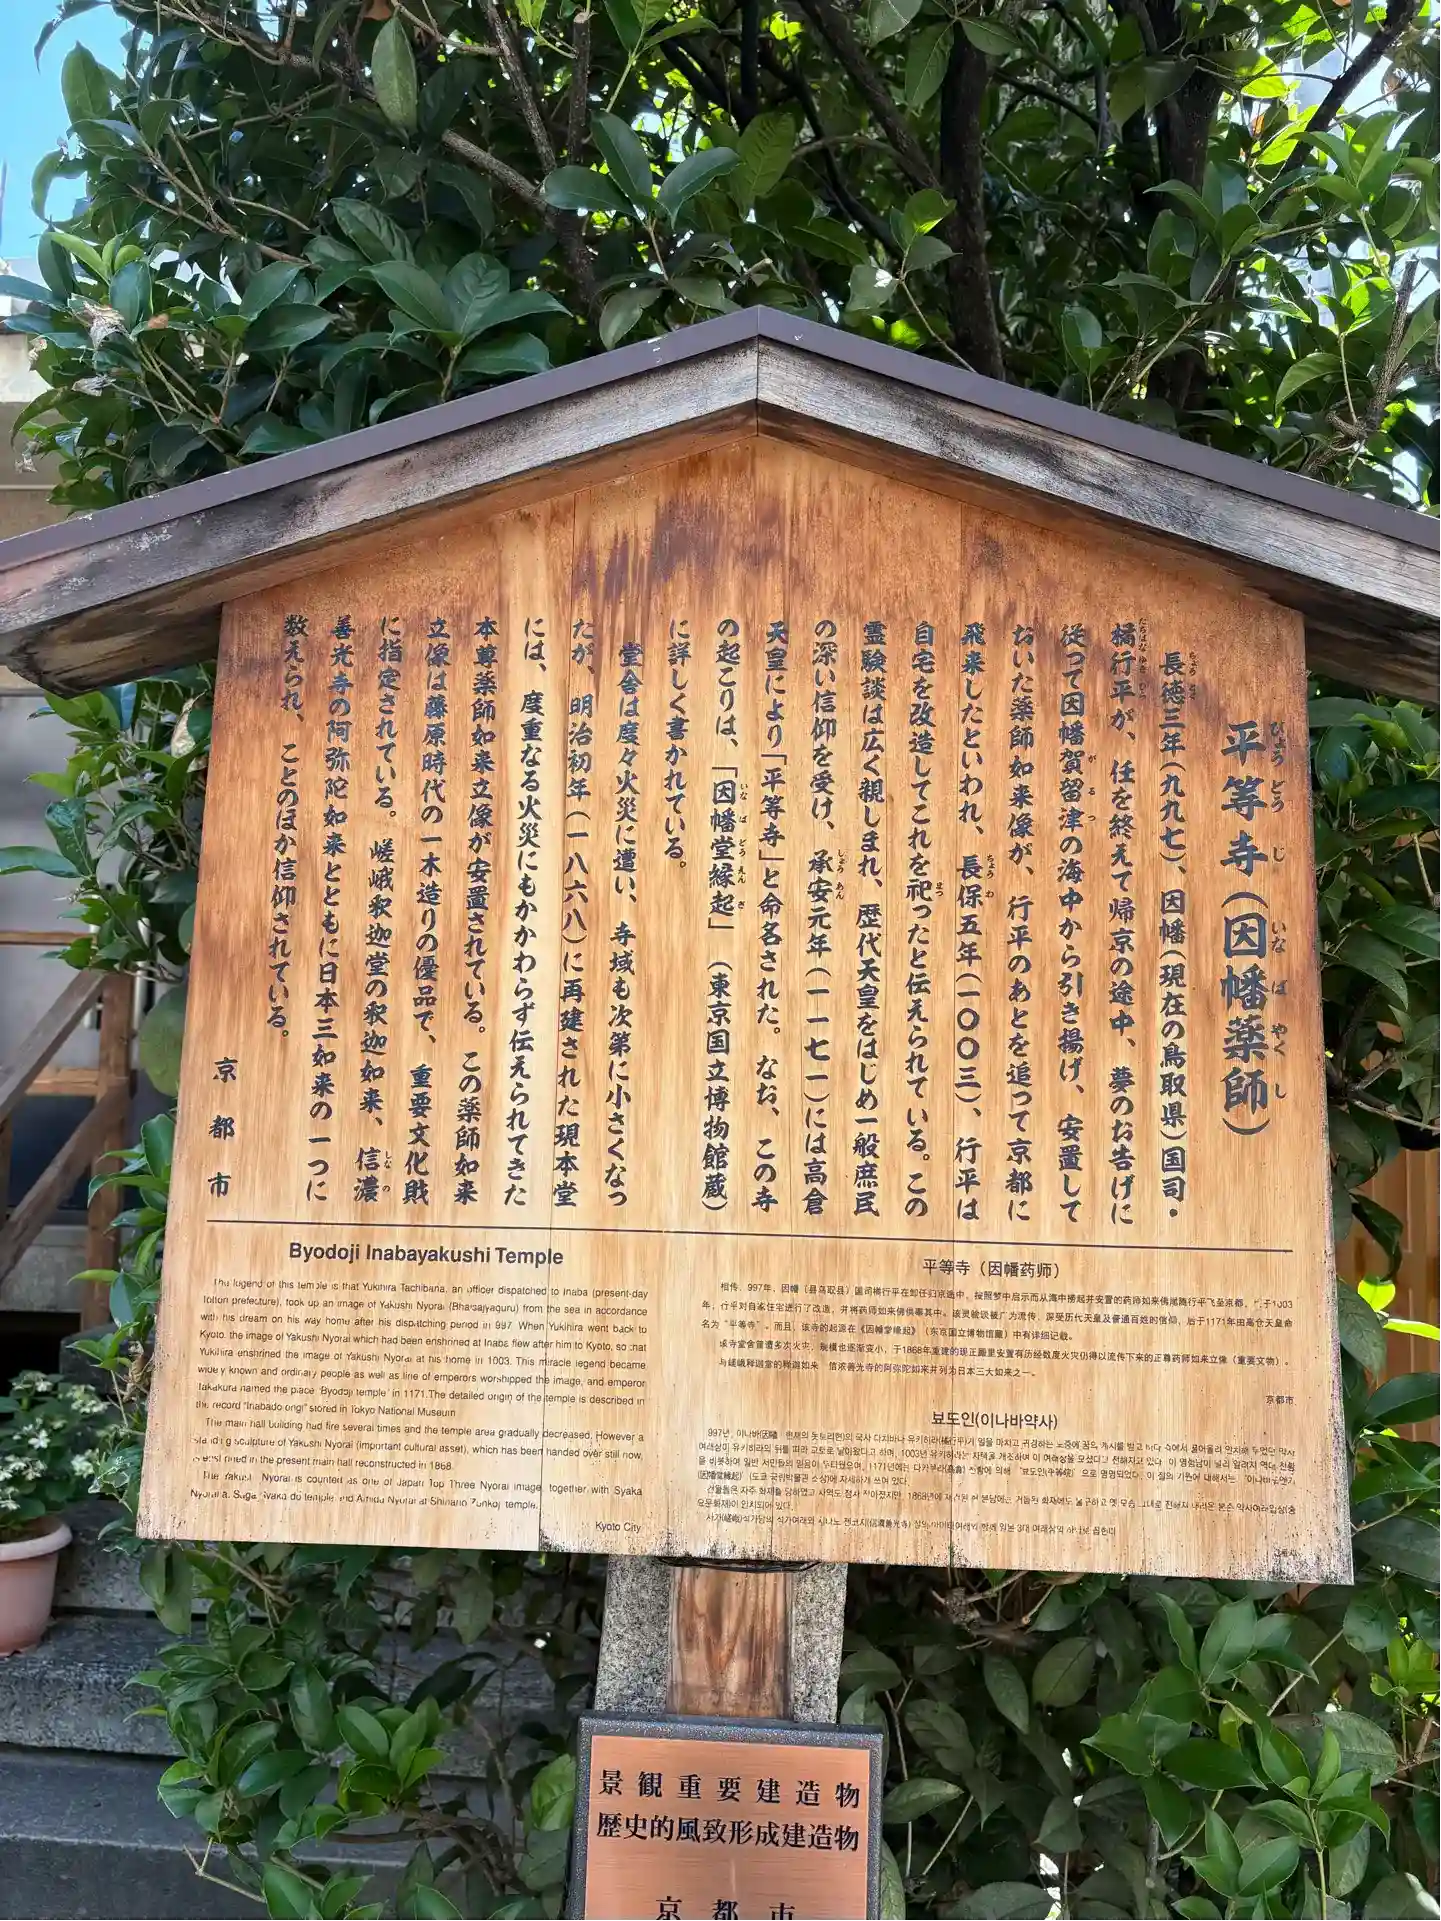 平等寺(因幡薬師)
びょうどうじ いなばやくし
長徳三年(九九七)、因幡(現在の鳥取県)国司・
橘行平が、任を終えて帰京の途中、夢のお告げに
従って因幡賀留津の海中から引き揚げ、安置して
おいた薬師如来像が、行平のあとを追って京都に
飛来したといわれ、長保五年(一〇〇三)、行平は
自宅を改造してこれを祀ったと伝えられている。この
霊験談は広く親しまれ、歴代天皇をはじめ一般庶民
の深い信仰を受け、承安元年(一一七一)には高倉
天皇により「平等寺」と命名された。なお、この寺
の起こりは、「因幡堂縁起」(東京国立博物館蔵)
に詳しく書かれている。
堂舎は度々火災に遭い、寺域も次第に小さくなっ
たが、明治初年(一八六八)に再建された現本堂
には、度重なる火災にもかかわらず伝えられてきた
本尊薬師如来立像が安置されている。この薬師如来
立像は藤原時代の一木造りの優品で、重要文化財
に指定されている。嵯峨釈迦堂の釈迦如来、信濃
善光寺の阿弥陀如来とともに日本三如来の一つに
数えられ、ことのほか信仰されている。
京都市
Byodoji Inabayakushi Temple
The legend of this temple is that Yukihira Tachibana, an officer dispatched to Inaba (present-day
Tottori prefecture), took up an image of Yakushi Nyorai (Bhaisajyaguru) from the sea in accordance
with his dream on his way home after his dispatching period in 997. When Yukihira went back to
Kyoto, the image of Yakushi Nyorai which had been enshrined at Inaba flew after him to Kyoto, so that
Yukihira enshrined the image of Yakushi Nyorai at his home in 1003. This miracle legend became
widely known and ordinary people as well as line of emperors worshipped the image, and emperor
Takakura named the place 'Byodoji temple' in 1171. The detailed origin of the temple is described in
the record "Inabado engi" stored in Tokyo National Museum.
The main hall building had fire several times and the temple area gradually decreased. However a
standing sculpture of Yakushi Nyorai (important cultural asset), which has been handed over still now,
is enshrined in the present main hall reconstructed in 1868.
The Yakushi Nyorai is counted as one of Japan Top Three Nyorai image, together with Syaka
Nyorai at Saga Syaka do temple and Amida Nyorai at Shinano Zenkoji temple.
Kyoto City
平等寺(因幡药师)
相传，997年，因幡（县鸟取县）国司橘行平在卸任归京途中，按照梦中启示而从海中捞起并安置的药师如来佛尾随行平飞至京都，于1003
年，行平对自家住宅进行了改造，并将药师如来佛供奉其中。该灵验谈被广为流传，深受历代天皇及普通百姓的信仰，后于1171年由高仓天皇命
名为“平等寺”。而且，该寺的起源在《因幡堂缘起》（东京国立博物馆藏）中有详细记载。
该寺堂舍曾遭多次火灾，规模也逐渐变小，于1868年重建的现正殿里安置有历经数度火灾仍得以流传下来的正尊药师如来立像（重要文物）。
与嵯峨释迦堂的释迦如来 信浓善光寺的阿弥陀如来并列为日本三大如来之一。
京都市
뵤도인(이나바약사)
景観重要建造物
歴史的風致形成建造物
京都市